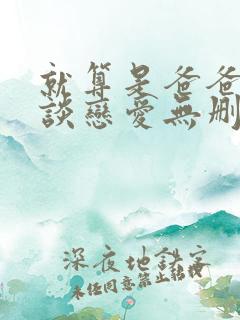 就算是爸爸
談戀愛無刪
深夜地誹客
未經同意禁止轉載